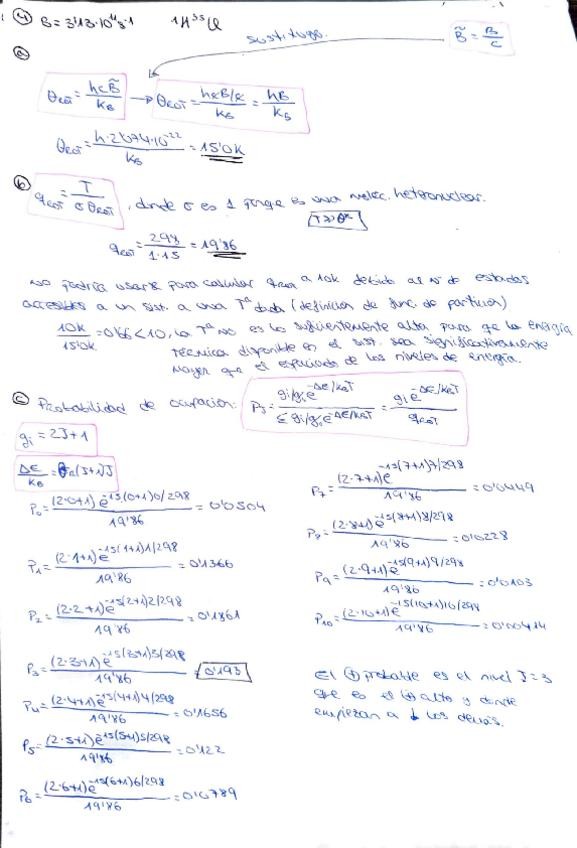 ④ B = 3'13·10¹¹ s⁻¹ 1H³⁵Cl
sustituyo. B̃ = B/c
ⓐ
θROT = hcB̃/kB → θROT = hcB/c/kB = hB/kB
θROT = h·2'074·10⁻²²/kB = 15'0K
ⓑ qROT = T/σθROT, donde σ es 1 porque es una molec. heteronuclear.
qROT = 298/1·15 = 19'86
No podría usarse para calcular qROT a 10K debido al nº de estados
accesibles a un sist. a una Tª dada (definición de func. de partición)
10K/15'0K = 0'66 < 10, la Tª no es lo suficientemente alta para que la energía
térmica disponible en el sist. sea significativamente
mayor que el espaciado de los niveles de energía.
ⓒ Probabilidad de ocupación: PJ = gi/g0 e^(-ΔE/kBT)/Σ gi/g0 e^(-ΔE/kBT) = gi e^(-ΔE/kBT)/qROT
gi = 2J+1
ΔE/kB = θR(J+1)J
P0 = (2·0+1)e^(-15(0+1)0/298)/19'86 = 0'0504
P1 = (2·1+1)e^(-15(1+1)1/298)/19'86 = 0'1366
P2 = (2·2+1)e^(-15(2+1)2/298)/19'86 = 0'1861
P3 = (2·3+1)e^(-15(3+1)3/298)/19'86 = 0'193
P4 = (2·4+1)e^(-15(4+1)4/298)/19'86 = 0'1656
P5 = (2·5+1)e^(-15(5+1)5/298)/19'86 = 0'122
P6 = (2·6+1)e^(-15(6+1)6/298)/19'86 = 0'0789
P7 = (2·7+1)e^(-15(7+1)7/298)/19'86 = 0'0449
P8 = (2·8+1)e^(-15(8+1)8/298)/19'86 = 0'0228
P9 = (2·9+1)e^(-15(9+1)9/298)/19'86 = 0'0103
P10 = (2·10+1)e^(-15(10+1)10/298)/19'86 = 0'00414
El ⊕ probable es el nivel J=3
que es el ⊕ alto y donde
empiezan a ↓ los demás.